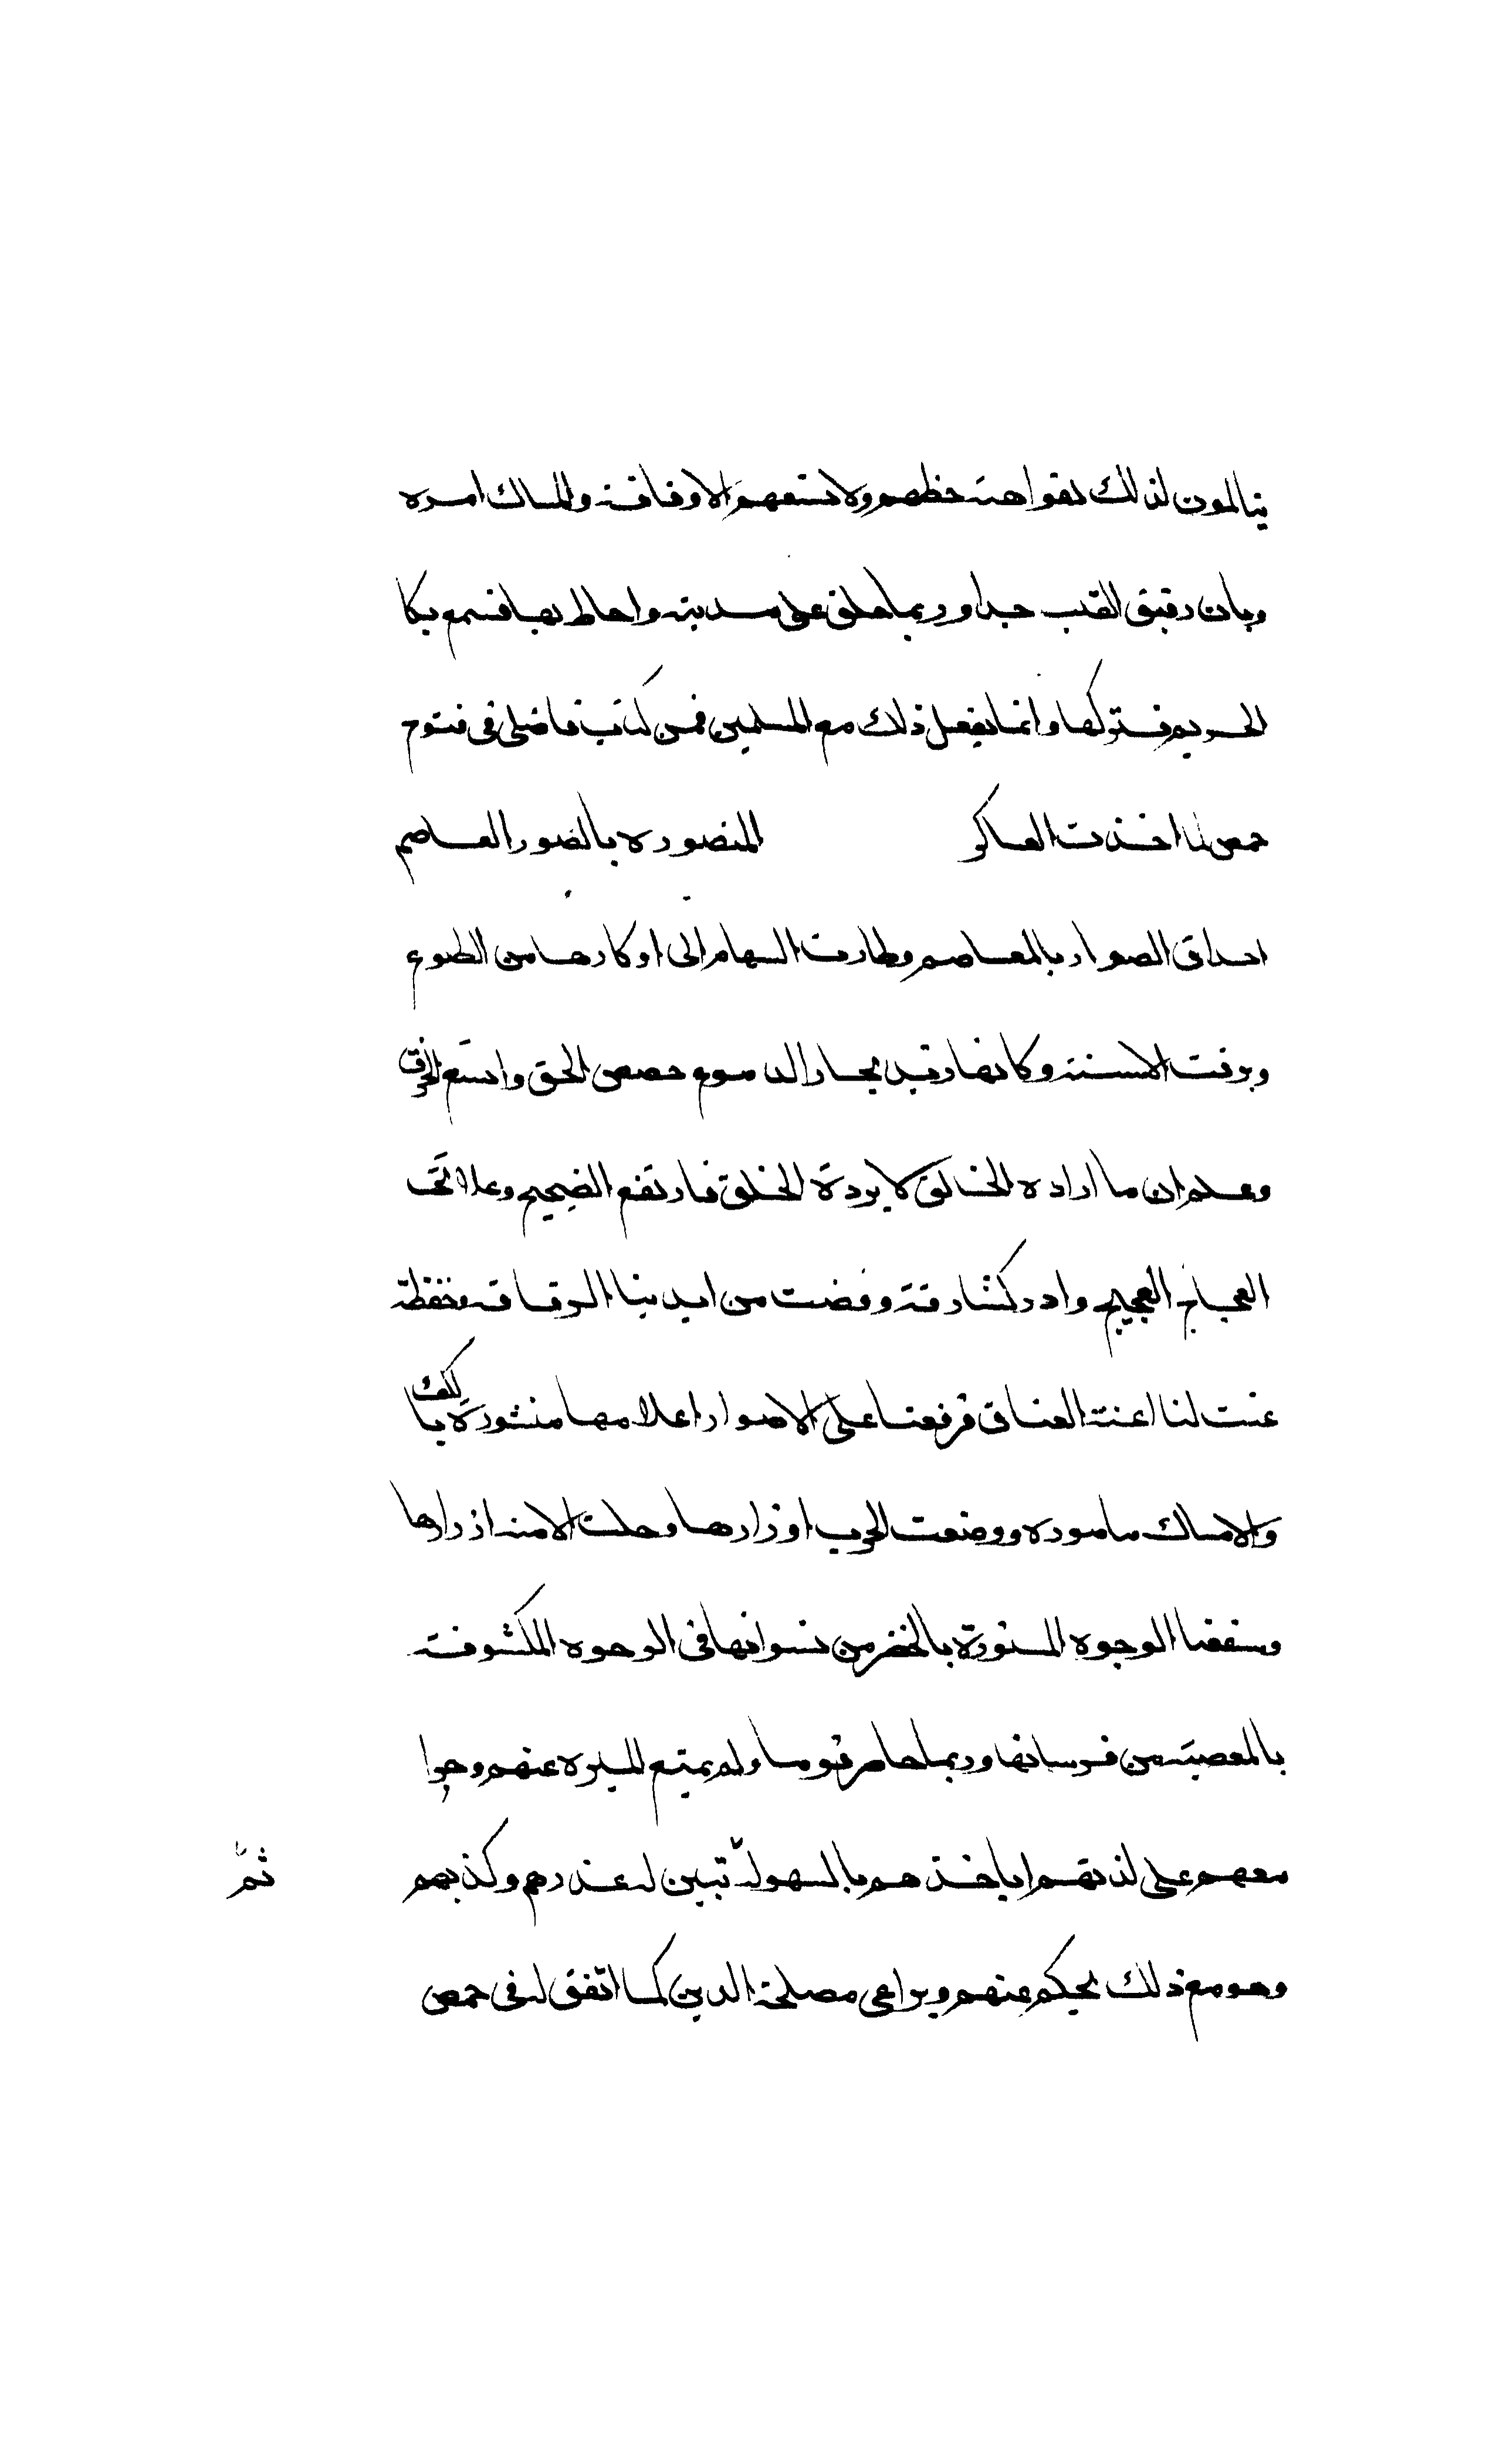 يتالمون لذلك لفواهة حظهم ولا تسعهم الا وفاقه والمساك امره
وبان رقيق القلب جدا وربما حلق على مدينة واحاط بها فسمع بكا
الحريم فتركها وانما يفعل ذلك مع المسلمين فمن كتاب فاضلى فى فتوح
حمص لما اخذت العساكر المنصوره بالضور العاصم
احداق الصوار بالمعاصم وطارت السهام الى اوكارها من الطلوع
وبرقت الاسنة وكانها رقيل بحار الدموع حصحص الحق واتسع الخرق
وعلم ان ما اراده الخالق لا يردة الخلق فارتفع الضجيج وعلا تحت
العجاج العجيج وادركتنا رقة وفضت من ايدينا الرقاق وحفظة
عنت لنا اعنة العناق فرفعنا على الاصوار اعلامها منشورة بالكف
والامساك مامورة ووضعت الحرب اوزارها وحلت الامنة ازرارها
وشفعنا الوجوه المستورة بالخفر من نسوانها فى الوجوه المكشوفة
بالمعصية من فرسانها وربما حاصر قوما ولم يمنع الميرة عنهم وجوا
معهم على لذنهم اياخذهم بالسهولة تبين له عذرهم وكذبهم
ثم
وهو مع ذلك يحكم عنهم ويراعى مصلحة الدين كما اتفق له فى حمص